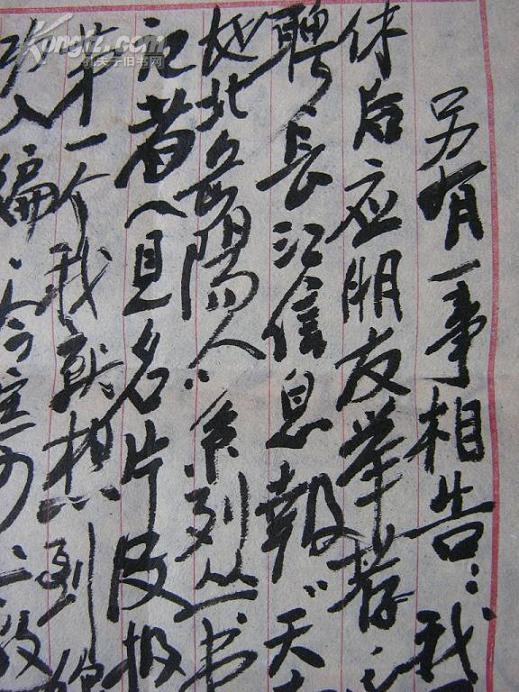 另有一事相告：我
休后应朋友举荐，
聘长江信息报"天
地北岳阳人"系列丛书
记者（见名片及报
第一个我就想到您
编
Kongfz.com
孔夫子旧书网